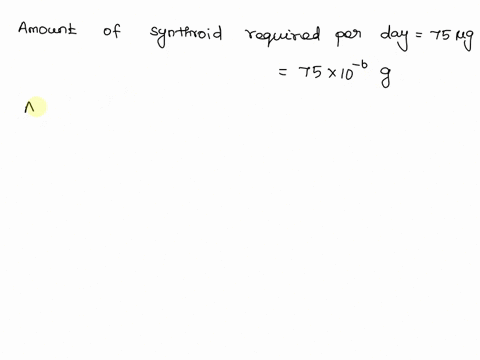 Amount of synthroid required per day = 75 μg
= 75 × 10⁻⁶ g
A